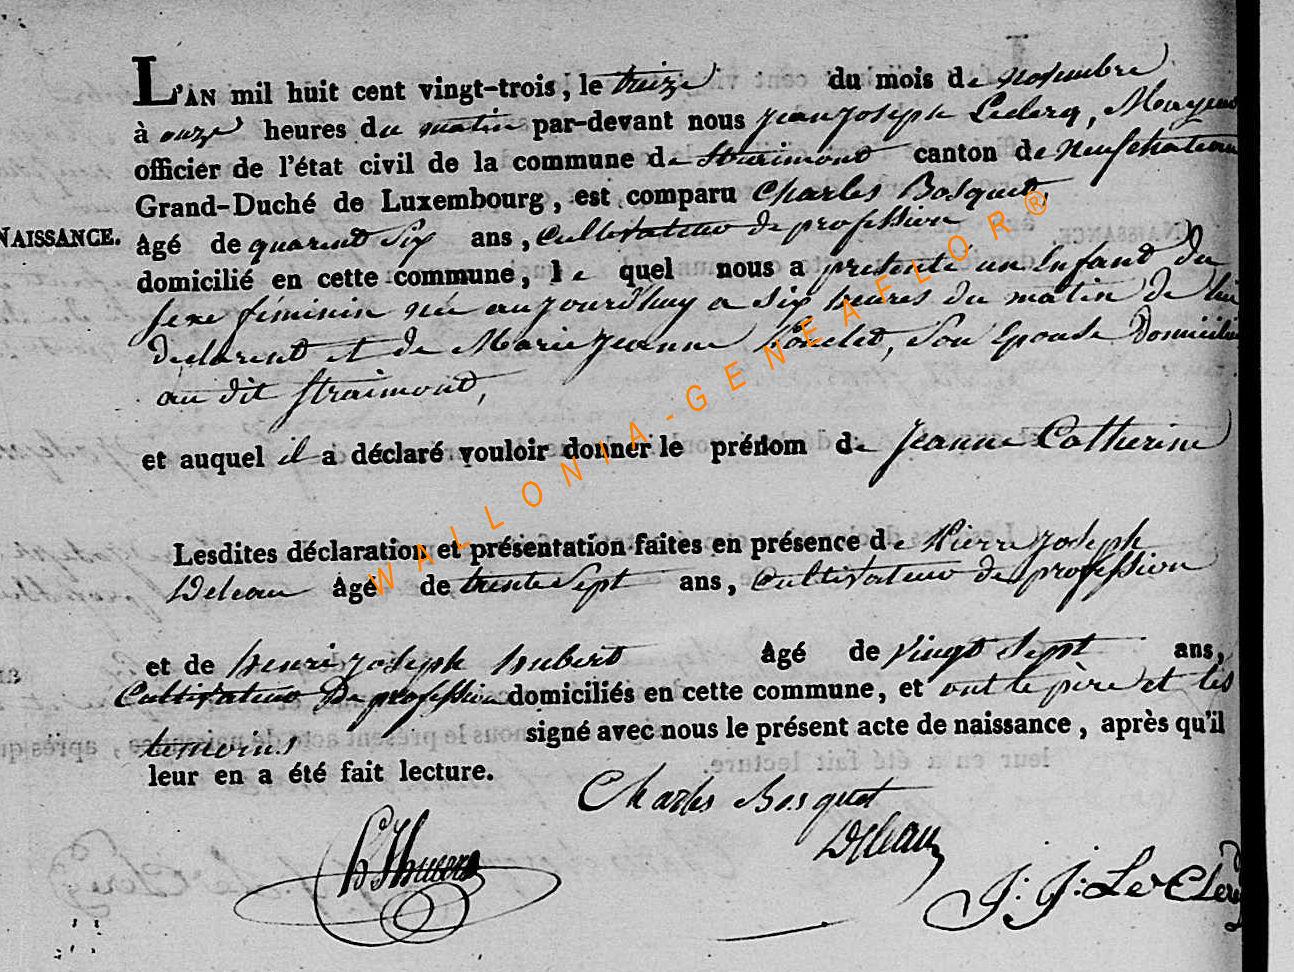 L'AN mil huit cent vingt-trois, le treize du mois de novembre
à onze heures du matin par-devant nous Jean Joseph Leclerq, Mayeur
officier de l'état civil de la commune de Straimont canton de Neufchateau
Grand-Duché de Luxembourg, est comparu Charles Bosquet,
NAISSANCE. âgé de quarent Six ans, Cultivateur de profession
domicilié en cette commune, le quel nous a presenté un Enfant du
sexe féminin née aujourd'huy a Six heures du matin de lui
declarent et de Marie Jeanne, Son Epouse Domicilié
au dit Straimont,
et auquel il a déclaré vouloir donner le prénom de Jeanne Catherine
Lesdites déclaration et présentation faites en présence de Pierre Joseph
Deleau âgé de trente Sept ans, Cultivateur de profession
et de henri Joseph hubert âgé de vingt Sept ans,
Cultivateur De profession domiciliés en cette commune, et ont le père et les
temoins signé avec nous le présent acte de naissance, après qu'il
leur en a été fait lecture.
Charles Bosquet
Deleau
J: J: Le Clerq
WALLONIA-GENEAFLOR®